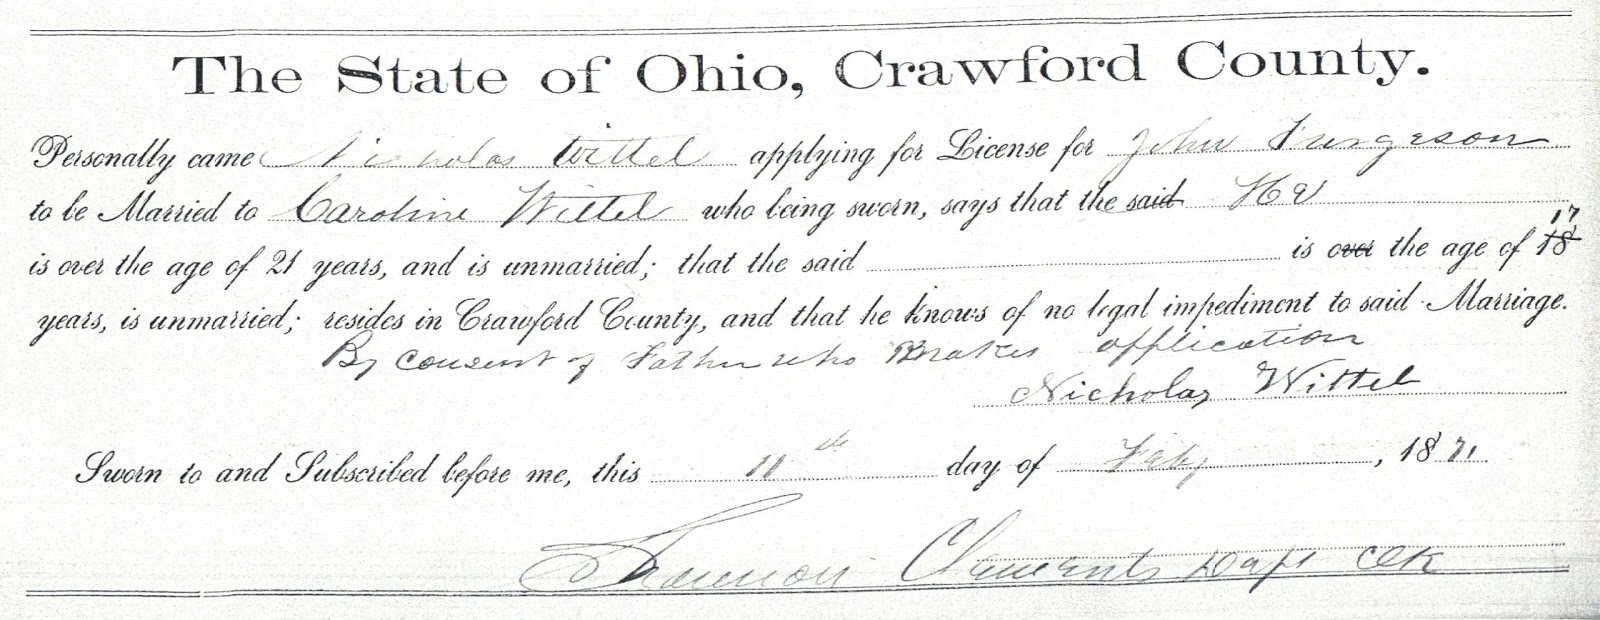 The State of Ohio, Crawford County.
Personally came Nicholas Wittel applying for License for John Furgeson
to be Married to Caroline Wittel who being sworn, says that the said He
17
is over the age of 21 years, and is unmarried; that the said is over the age of 18
years, is unmarried; resides in Crawford County, and that he knows of no legal impediment to said Marriage.
By consent of Father who Makes application
Nicholas Wittel
Sworn to and Subscribed before me, this 11th day of Feby, 1871
Clements Dept Clk